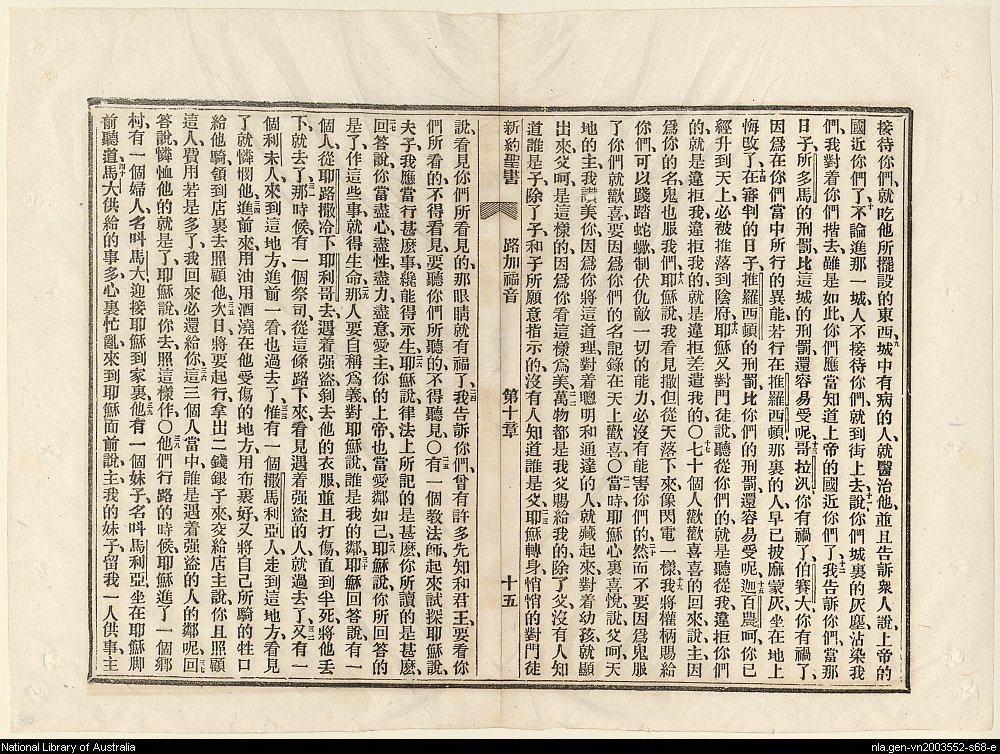 接待你們就吃他所擺設的東西、九城中有病的人就醫治他並且告訴衆人說上帝的
國近你們了、十不論進那一城人不接待你們就到街上去說、十一你們城裏的灰塵沾染我
們、我對着你們揩去雖是如此你們應當知道上帝的國近你們了、十二我告訴你們、當那
日子所多馬的刑罰、比這城的刑罰還容易受呢、十三哥拉汛你有禍了、伯賽大你有禍了、
因爲在你們當中所行的異能若行在推羅西頓那裏的人早已被麻蒙灰坐在地上
悔改了、十四在審判的日子推羅西頓的刑罰比你們的刑罰還容易受呢、十五迦百農呵、你已
經升到天上必被推落到陰府、十六耶穌又對門徒說聽從你們的就是聽從我違拒你們
的就是違拒我違拒我的就是違拒差遣我的〇十七七十個人歡歡喜喜的回來說主因
爲你的名鬼也服我們、十八耶穌說我看見撒但從天落下來像閃電一樣、十九我將權柄賜給
你們可以踐踏蛇蠍制伏仇敵一切的能力必沒有能害你們的、二十然而不要因爲鬼服
了你們就歡喜要因爲你們的名記錄在天上歡喜〇二一當時耶穌心裏喜悅說父呵天
地的主我讚美你因爲你將這道理對着聰明和通達的人就藏起來對着幼孩就顯
出來父呵是這樣的因爲你看這樣爲美、二二萬物都是我父賜給我的除了父沒有人知
道誰是子除了子和子所願意指示的沒有人知道誰是父、二三耶穌轉身悄悄的對門徒
新約聖書 路加福音 第十章 十五
說看見你們所看見的那眼睛就有福了、二四我告訴你們曾有許多先知和君王、要看你
們所看的不得看見要聽你們所聽的不得聽見〇二五有一個教法師起來試探耶穌說
夫子我應當行甚麼事纔能得永生、二六耶穌說律法上所記的是甚麼你所讀的是甚麼、
二七回答說你當盡心盡性盡力盡意愛主你的上帝也當愛鄰如己、二八耶穌說你所回答的
是了、作這些事就得生命、二九那人要自稱爲義對耶穌說誰是我的鄰、三十耶穌回答說有一
個人從耶路撒冷下耶利哥去遇着强盜剝去他的衣服並且打傷直到半死將他丢
下就去了、三一那時候有一個祭司從這條路下來看見遇着强盜的人就過去了、三二又有一
個利未人來到這地方進前一看也過去了、三三惟有一個撒馬利亞人走到這地方看見
了就憐憫他、三四進前來用油用酒澆在他受傷的地方用布裹好又將自己所騎的牲口
給他騎領到店裏去照顧他、三五次日將要起行拿出二錢銀子來交給店主說你且照顧
這人費用若是多了我回來必還給你、三六這三個人當中誰是遇着强盜的人的鄰呢、三七回
答說憐恤他的就是了、耶穌說你去照這樣作〇三八他們行路的時候耶穌進了一個鄉
村、有一個婦人、名叫馬大、迎接耶穌到家裏、三九他有一個妹子、名叫馬利亞、坐在耶穌脚
前聽道、四十馬大供給的事多、心裏忙亂來到耶穌面前說、主我的妹子留我一人供事主
National Library of Australia
nla.gen-vn2003552-s68-e